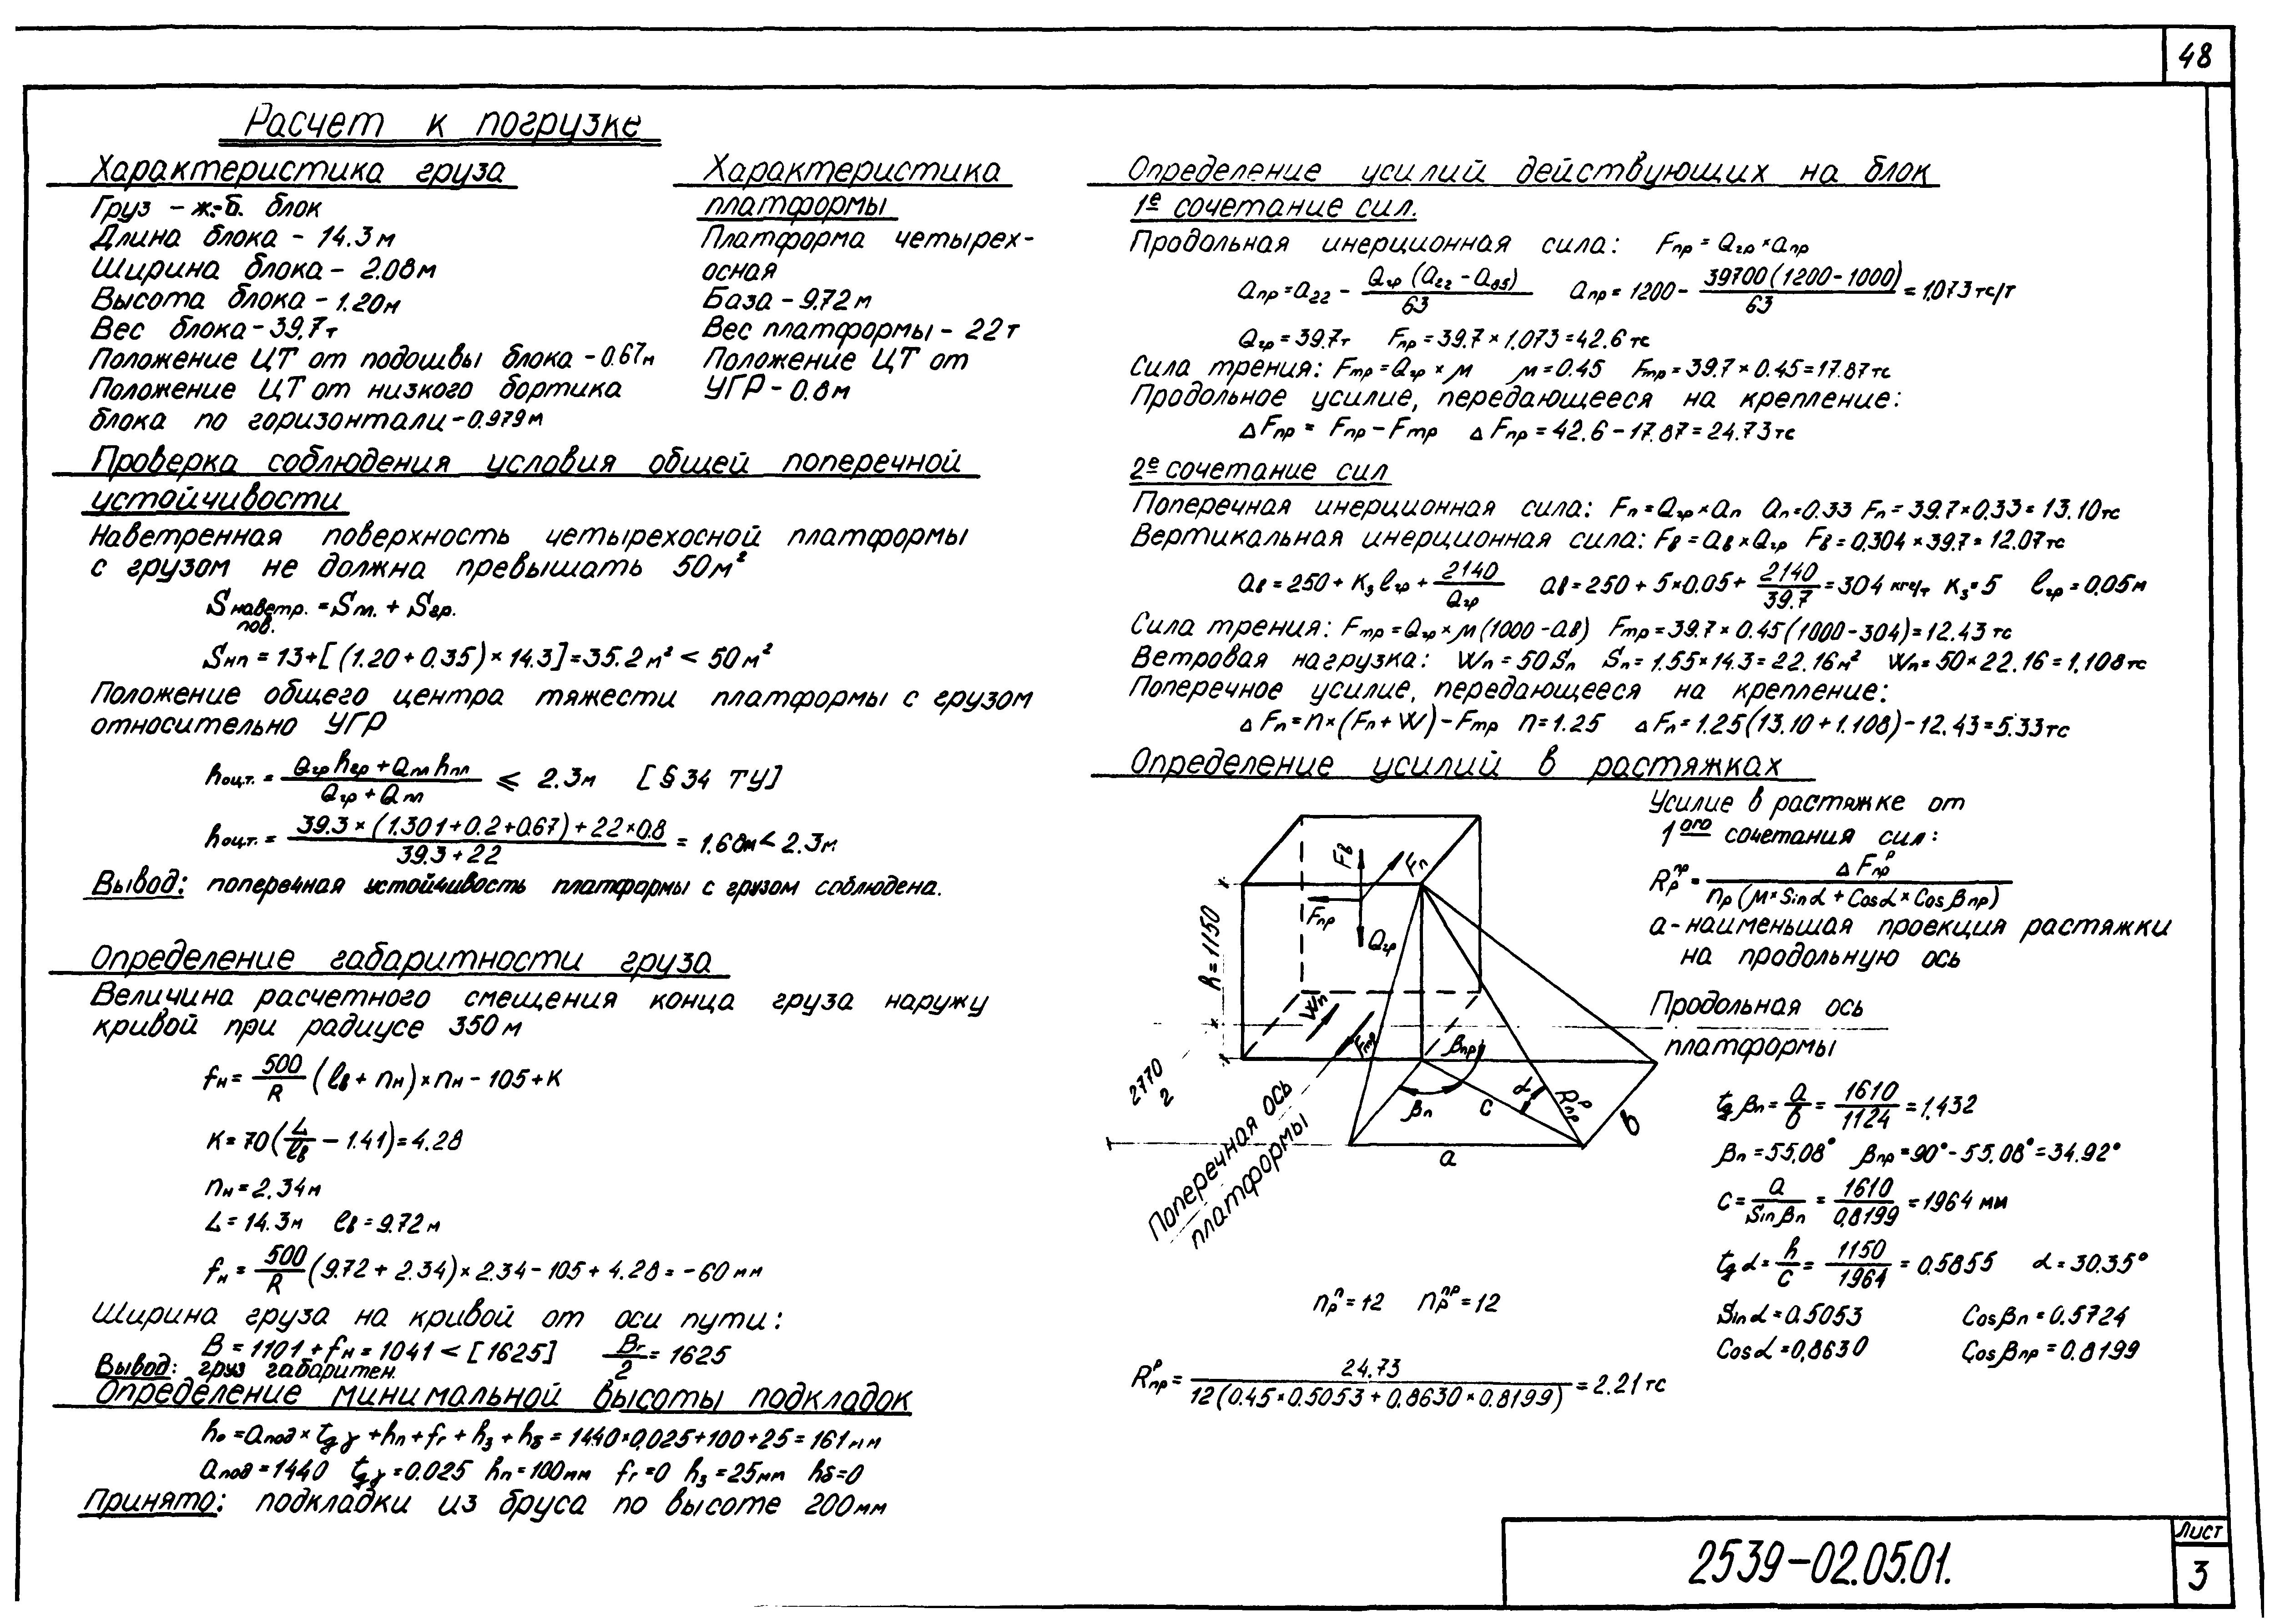 48
Расчет к погрузке
Характеристика груза
Груз – ж.-б. блок
Длина блока – 14.3м
Ширина блока – 2.08м
Высота блока – 1.20м
Вес блока – 39.7т
Положение ЦТ от подошвы блока – 0.67м
Положение ЦТ от низкого бортика
блока по горизонтали – 0.979м
Характеристика
платформы
Платформа четырех-
осная
База – 9.72м
Вес платформы – 22т
Положение ЦТ от
УГР – 0.8м
Проверка соблюдения условия общей поперечной
устойчивости
Наветренная поверхность четырехосной платформы
с грузом не должна превышать 50м²
Sнаветр. пов. = Sпл. + Sгр.
Sнп = 13+[(1.20+0.35)×14.3]=35.2м² < 50м²
Положение общего центра тяжести платформы с грузом
относительно УГР
hоцт. = (Qгр hгр + Qпл hпл)/(Qгр + Qпл) ≤ 2.3м [§34 ТУ]
hоцт. = (39.3×(1.301+0.2+0.67)+22×0.8)/(39.3+22) = 1.68м < 2.3м
Вывод: поперечная устойчивость платформы с грузом соблюдена.
Определение габаритности груза
Величина расчетного смещения конца груза наружу
кривой при радиусе 350м
fн = 500/R (lв + nн)×nн – 105 + К
К = 70(L/lв – 1.41) = 4.28
nн = 2.34м
L = 14.3м lв = 9.72м
fн = 500/R (9.72 + 2.34)×2.34 – 105 + 4.28 = –60мм
Ширина груза на кривой от оси пути:
В = 1101 + fн = 1041 < [1625] Вг/2 = 1625
Вывод: груз габаритен.
Определение минимальной высоты подкладок
hо = апод × tgγ + hп + fг + hз + hб = 1440×0,025+100+25 = 161мм
апод = 1440 tgγ = 0.025 hп = 100мм fг = 0 hз = 25мм hб = 0
Принято: подкладки из бруса по высоте 200мм
Определение усилий действующих на блок
1е сочетание сил.
Продольная инерционная сила: Fпр = Qгр × апр
апр = а22 – Qгр(а22 – а85)/63 апр = 1200 – 39700(1200–1000)/63 = 1,073тс/т
Qгр = 39.7т Fпр = 39.7 × 1.073 = 42.6тс
Сила трения: Fтр = Qгр × м м = 0.45 Fтр = 39.7 × 0.45 = 17.87тс
Продольное усилие, передающееся на крепление:
ΔFпр = Fпр – Fтр ΔFпр = 42.6 – 17.87 = 24.73тс
2е сочетание сил
Поперечная инерционная сила: Fп = Qгр × ап ап = 0.33 Fп = 39.7×0.33 = 13.10тс
Вертикальная инерционная сила: Fв = ав × Qгр Fв = 0.304 × 39.7 = 12.07тс
ав = 250 + Кз lгр + 2140/Qгр ав = 250 + 5×0.05 + 2140/39.7 = 304 кгс/т Кз = 5 lгр = 0,05м
Сила трения: Fтр = Qгр × м(1000 – ав) Fтр = 39.7 × 0.45(1000–304) = 12.43тс
Ветровая нагрузка: Wп = 50Sп Sп = 1.55×14.3 = 22.16м² Wп = 50×22.16 = 1,108тс
Поперечное усилие, передающееся на крепление:
ΔFп = n×(Fп + W) – Fтр n = 1.25 ΔFп = 1.25(13.10 + 1.108) – 12.43 = 5.33тс
Определение усилий в растяжках
Усилие в растяжке от
1ого сочетания сил:
Rрпр = ΔFпрр/(nр(м×Sinα + Cosα×Cosβпр))
а – наименьшая проекция растяжки
на продольную ось
Fв
Fп
Fпр
Qгр
h=1150
Wп
Fтр
2770/2
βпр
βп
c
α
Rпрр
в
а
Продольная ось
платформы
Поперечная ось
платформы
tgβп = а/в = 1610/1124 = 1,432
βп = 55,08° βпр = 90° – 55,08° = 34.92°
С = а/Sinβп = 1610/0,8199 = 1964мм
tgα = h/С = 1150/1964 = 0.5855 α = 30.35°
Sinα = 0.5053 Cosβп = 0.5724
Cosα = 0,8630 Cosβпр = 0.8199
nрп = 12 nрпр = 12
Rпрр = 24.73/(12(0.45×0.5053 + 0.8630×0.8199)) = 2.21тс
2539–02.05.01.
Лист
3